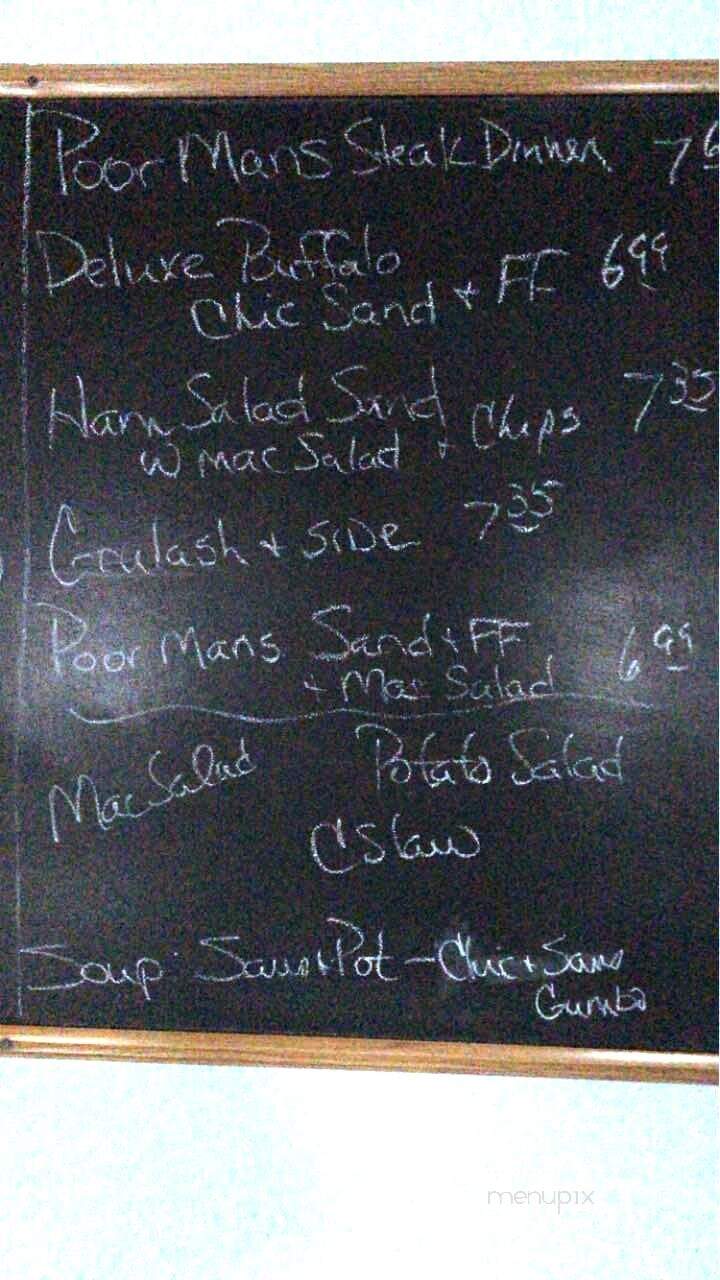 Poor Mans Steak Dinner 7 6
Deluxe Buffalo
Chic Sand + FF 6 99
Ham Salad Sand
w mac Salad + Chips 7 35
Goulash + SIDE 7 35
Poor Mans Sand + FF 6 99
+ Mac Salad
Mac Salad Potato Salad
C Slaw
Soup: Saus + Pot - Chic + Saus
Gumbo
menupix